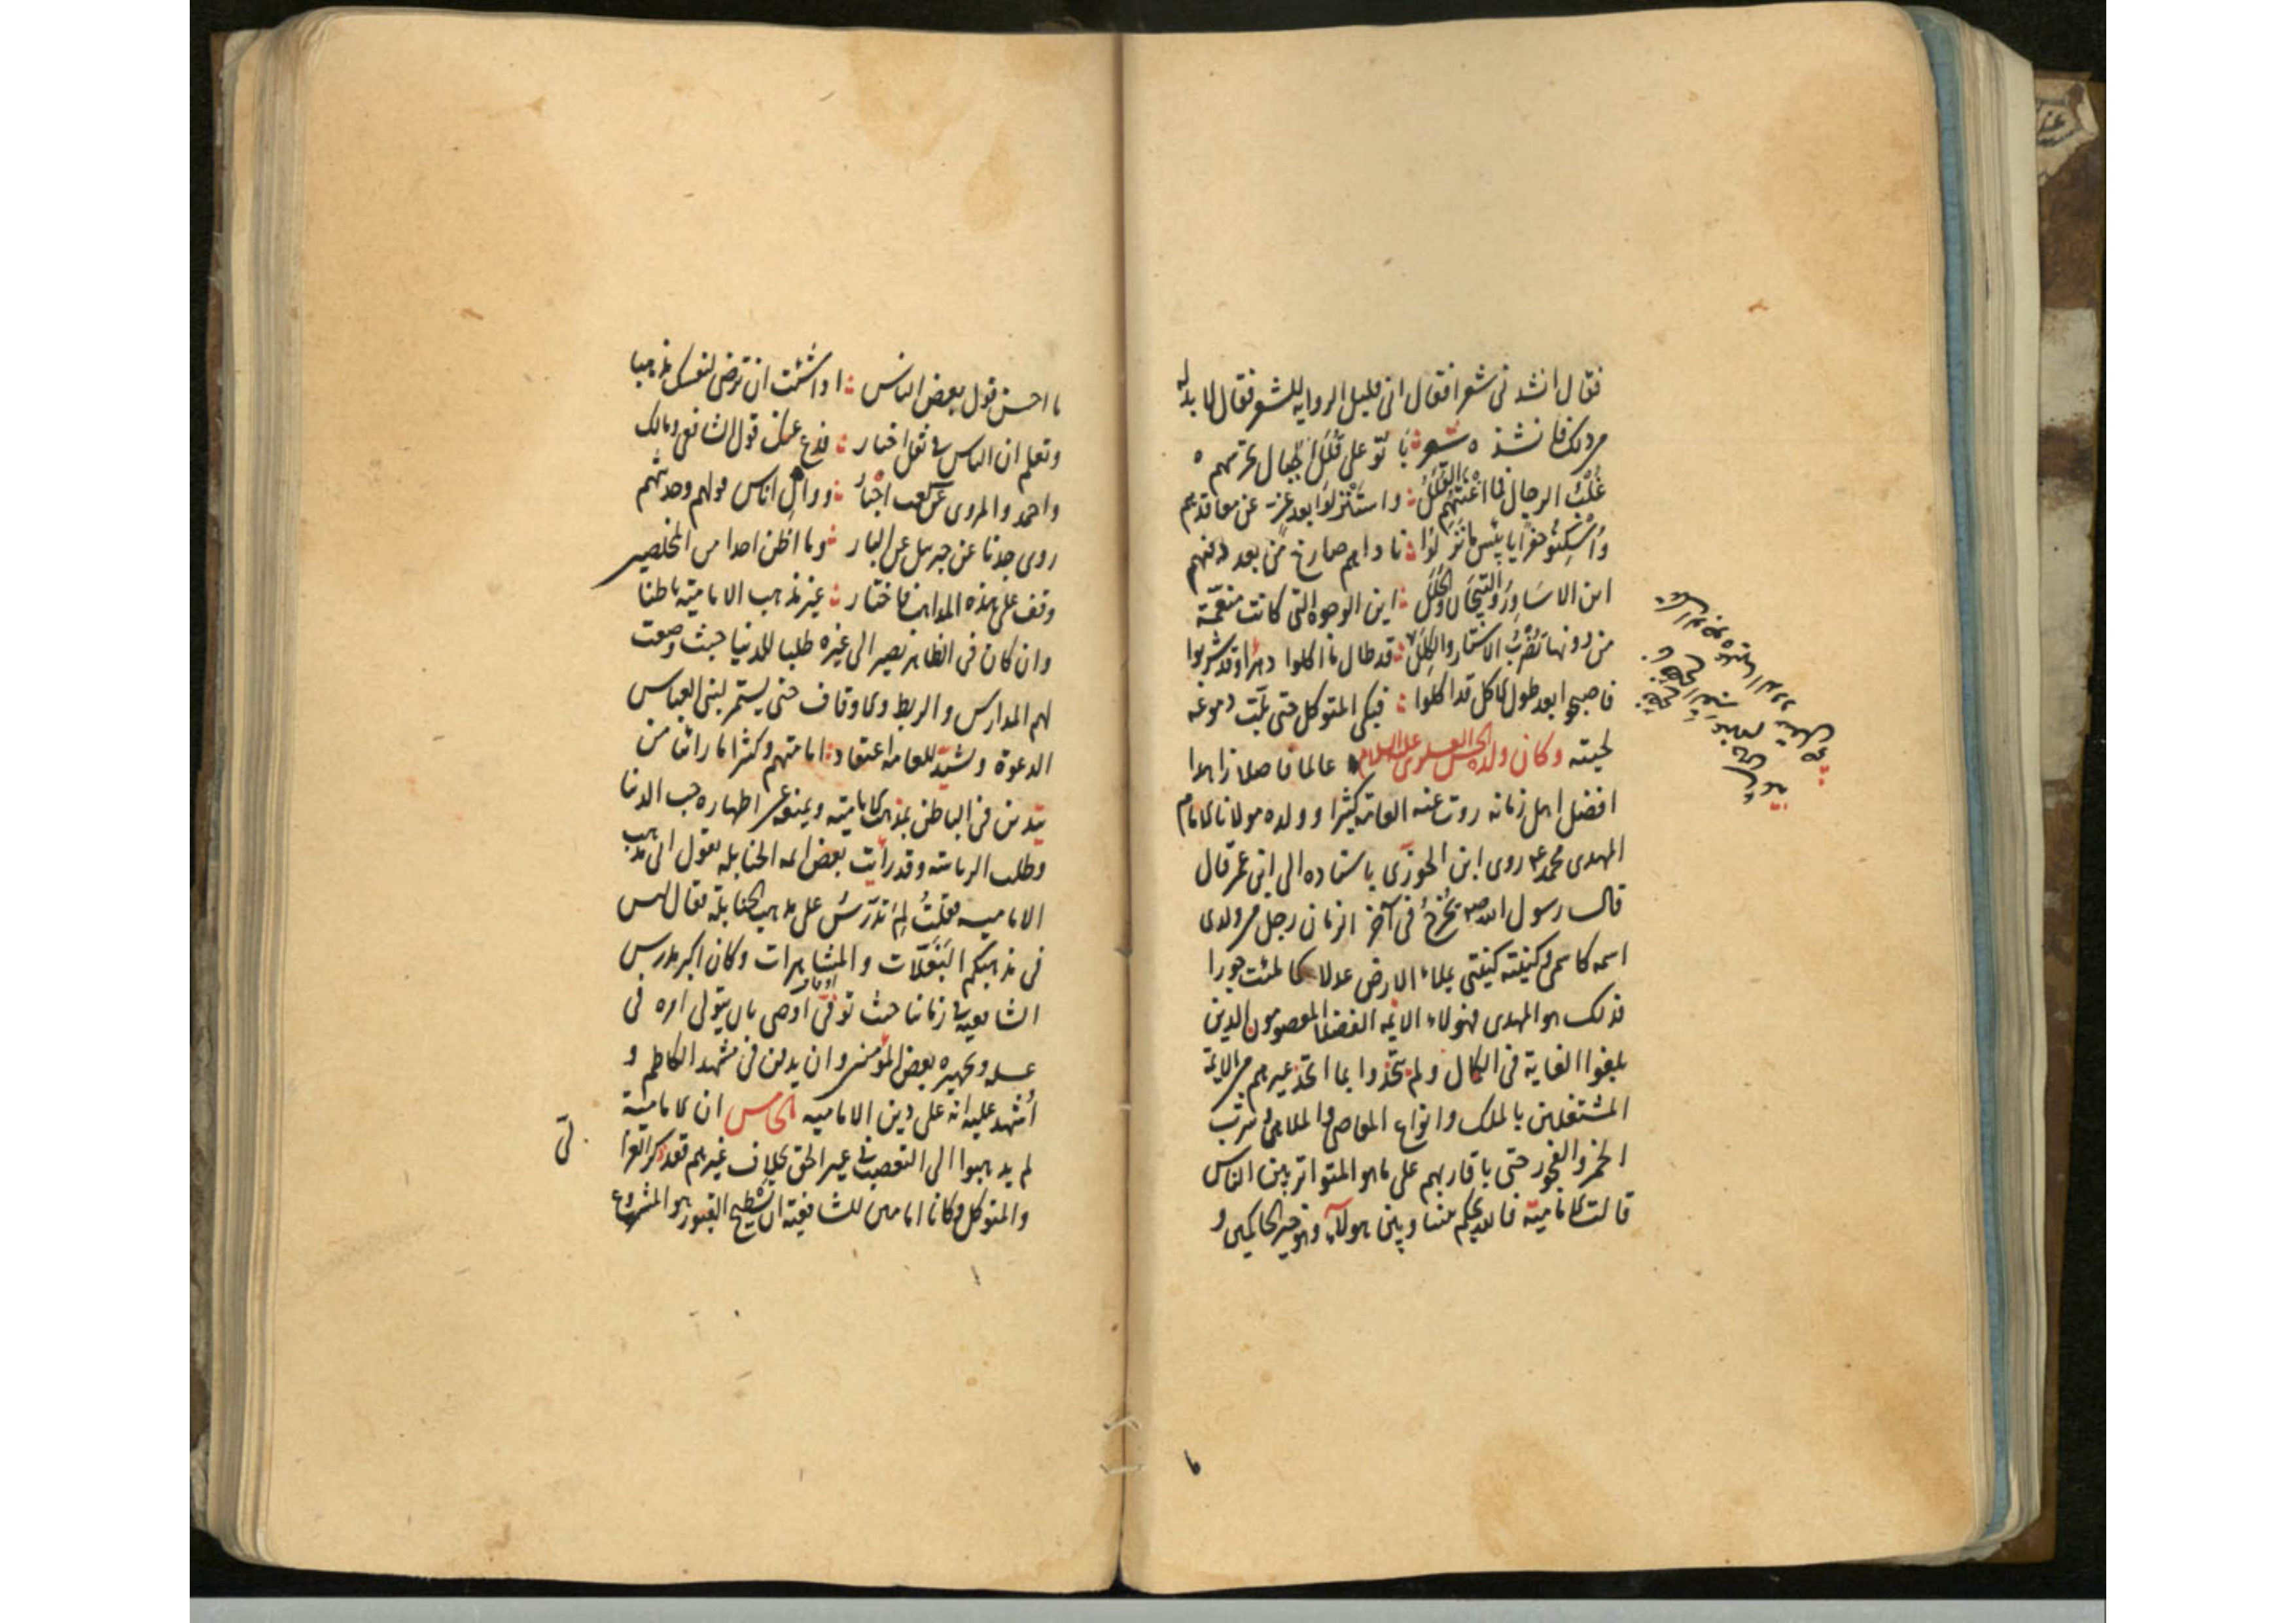 فقال انشدنى شعرا فقال انى قليل الروايه للشعر فقال لا بد لى
من ذلك فانشد ه شعر باتوا على قلل الجبال تحرسهم ه
غلب الرجال فما اغنتهم القلل واستنزلوا بعد عز عن معاقدهم
واسكنوا حفرا يا بئس ما نزلوا ناداهم صارخ من بعد دفنهم
اين الاساور والتيجان والحلل اين الوجوه التى كانت منعّمة
من دونها تضرب الاستار والكلل قد طال ما اكلوا دهرا وقد شربوا
فاصبحوا بعد طول الاكل قد اكلوا فبكى المتوكل حتى بلّت دموعه
لحيته وكان ولده الحسن العسكرى عليه السلام عالما فاضلا زاهدا
افضل اهل زمانه روت عنه العامة كثيرا وولده مولانا الامام
المهدى محمد ع روى ابن الجوزى باسناده الى ابن عمر قال
قال رسول الله ص يخرج فى آخر الزمان رجل من ولدى
اسمه كاسمى وكنيته كنيتى يملاء الارض عدلا كما ملئت جورا
فذلك هو المهدى فهولاء الائمه الفضلا المعصومون الذين
بلغوا الغاية فى الكمال ولم يتخذوا ما اتخذ غيرهم من الائمة
المشتغلين بالملك وانواع المعاصى والملاهى وشرب
الخمر والفجور حتى باقاربهم على ما هو المتواتر بين الناس
قالت الاماميّة فالله يحكم بيننا وبين هولاء وهو خير الحاكمين و
ما احسن قول بعض الناس اذا شئت ان ترضى لنفسك مذهبا
وتعلم ان الناس فى نقل اخبار فدع عنك قول الشافعى ومالك
واحمد والمروى عن كعب احبار ووال اناسا قولهم وحديثهم
روى جدنا عن جبريل عن البار وما اظن احدا من المحصلين
وقف على هذه المذاهب فاختار غير مذهب الاماميّة باطنا
وان كان فى الظاهر يصير الى غيره طلبا للدنيا حيث وضعت
لهم المدارس والربط والاوقاف حتى يستمر لبنى العباس
الدعوة ويشيّد للعامه اعتقاد امامتهم وكثيرا ما راينا من
يتدين فى الباطن بمذهب الاماميّة ويمنعه عن اظهاره حب الدنيا
وطلب الرياسة وقد رأيت بعض ائمه الحنابله يقول انى على مذهب
الاماميه فقلت لم تدرّس على مذهب الحنابلة فقال ليس
فى مذهبكم البغلات والمشاهرات وكان اكبر مدرس
الشافعيه فى زماننا حيث توفى اوصى بان يتولى امره فى
غسله وتجهيزه بعض المؤمنين وان يدفن فى مشهد الكاظم و
اشهد عليه انه على دين الاماميه الخامس ان الاماميّة
لم يذهبوا الى التعصب فى غير الحق بخلاف غيرهم فقد ذكر الغزا
والمتوكل وكانا امامين للشافعيّة ان تسطيح القبور هو المشروع
لى